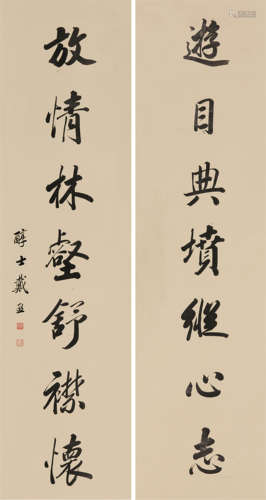 遊目典墳縱心志
放情林壑舒襟懷
醇士戴熙